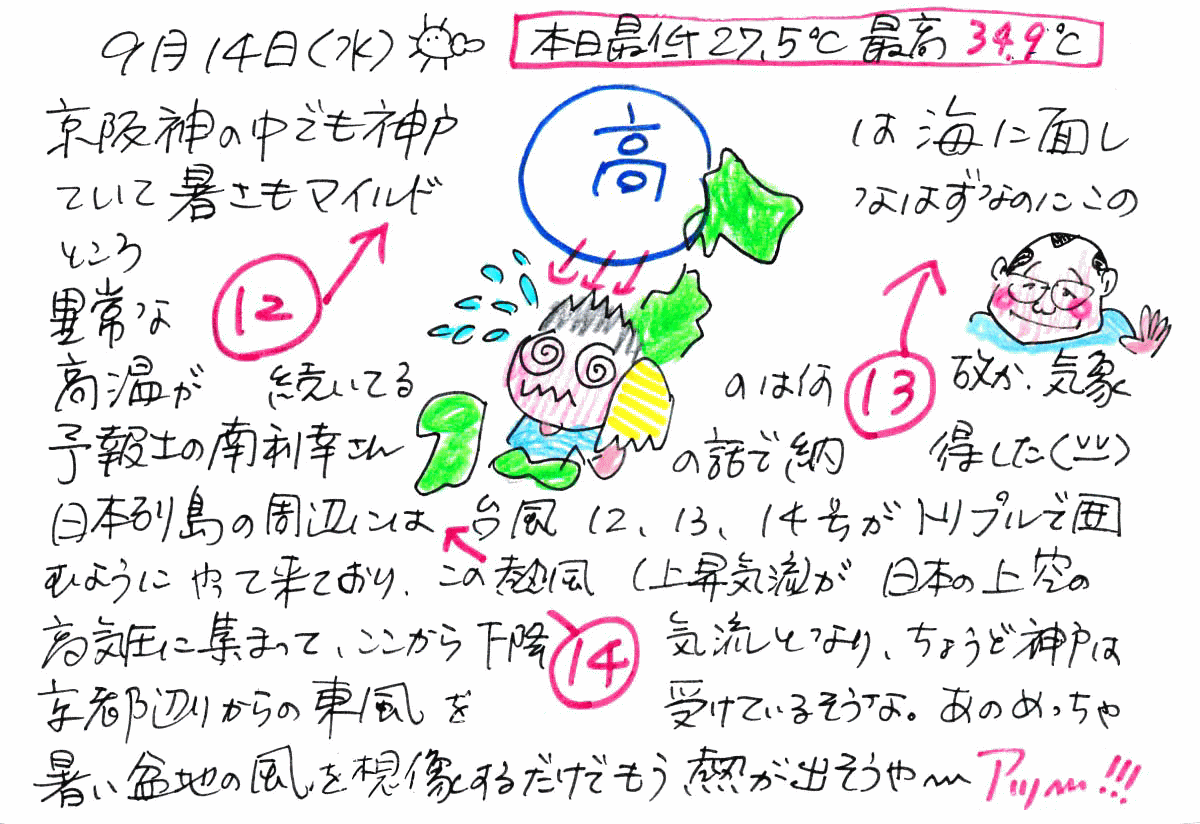 9月14日(水)
本日最低27.5℃ 最高34.9℃
高
京阪神の中でも神戸は海に面し
ていて暑さもマイルドなはずなのにこの
ところ
異常な
高温が続いてるのは何故か、気象
予報士の南利幸さんの話で納得した(^^)
日本列島の周辺には台風12、13、14号がトリプルで囲
むようにやって来ており、この熱風(上昇気流)が日本の上空の
高気圧に集まって、ここから下降気流となり、ちょうど神戸は
京都辺りからの東風を受けているそうな。あのめっちゃ
暑い盆地の風を想像するだけでもう熱が出そうや〜アツ〜!!!
12
13
14